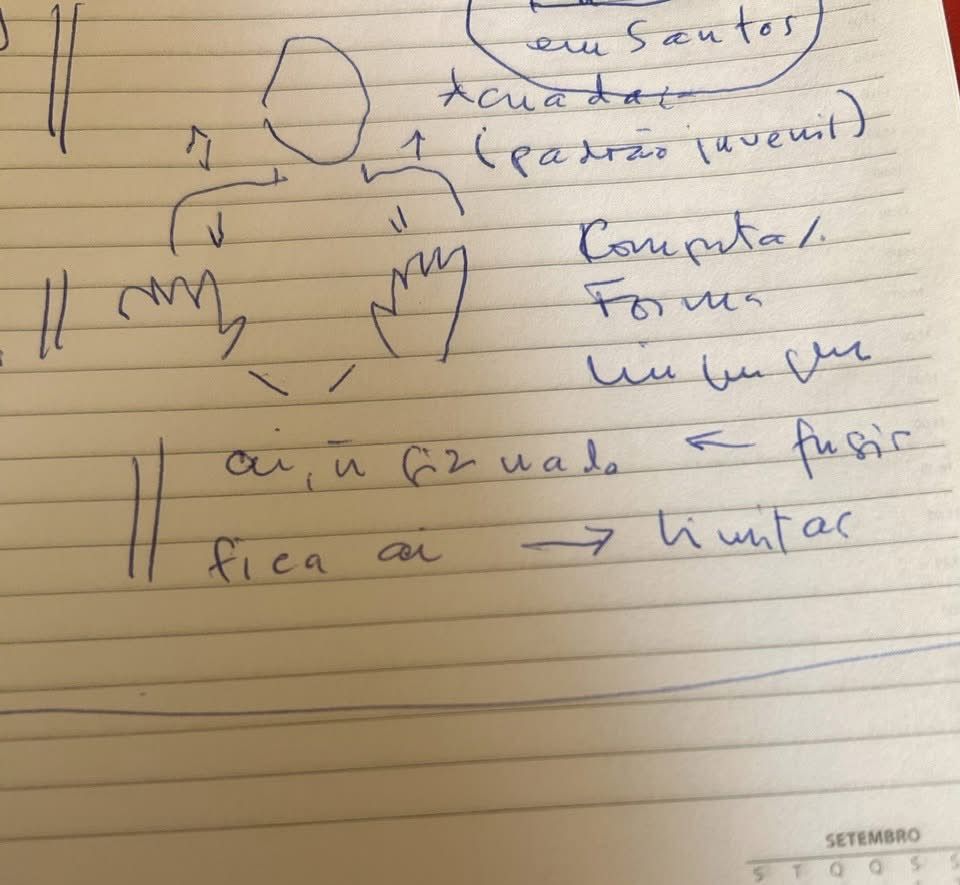 em Santos
Acuada
(padrão juvenil)
Comporta/.
Forma
ai, ñ fiz nada ← fugir
fica ai → limitar
SETEMBRO
S T Q Q S S